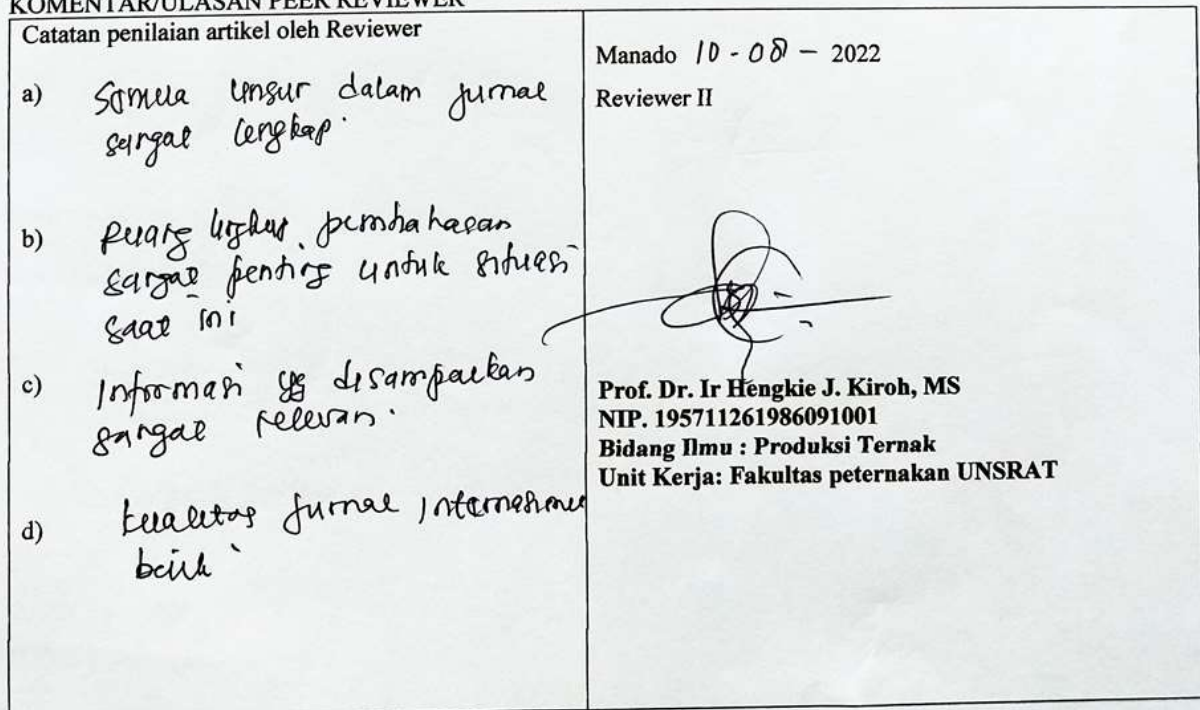 KOMENTAR/ULASAN PEER REVIEWER
Catatan penilaian artikel oleh Reviewer
a) Semua unsur dalam jurnal
sangat lengkap.
b) Ruang lingkup pembahasan
sangat penting untuk situasi
saat ini
c) Informasi yg disampaikan
sangat relevan.
d) kualitas jurnal internasional
baik
Manado 10 - 08 - 2022
Reviewer II
Prof. Dr. Ir Hengkie J. Kiroh, MS
NIP. 195711261986091001
Bidang Ilmu : Produksi Ternak
Unit Kerja: Fakultas peternakan UNSRAT